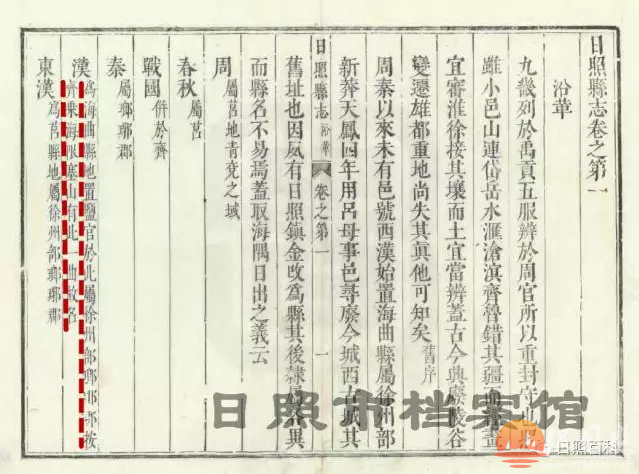 日照縣志卷之第一
沿革
九畿列於禹貢五服辨於周官所以重封守也
雖小邑山連岱岳水滙滄溟齊魯錯其疆而畫
宜審淮徐接其壤而土宜當辨蓋古今興廢陵谷
變遷雄都重地尚失其眞他可知矣 舊序
周秦以來未有邑號西漢始置海曲縣屬徐州部
新莽天鳳四年用呂母事邑尋廢今城西古城其
日照縣志 沿革 卷之第一 一
舊址也因夙有日照鎮金改爲縣其後隸屬異
而縣名不易焉蓋取海隅日出之義云
周 屬莒地青兗之域
春秋 屬莒
戰國 併於齊
秦 屬瑯琊郡
漢 爲海曲縣地置鹽官於此屬徐州部瑯琊郡按
齊乘海塞山有此一曲故名
東漢 爲莒縣地屬徐州部瑯琊郡
日照市档案馆
日照百科